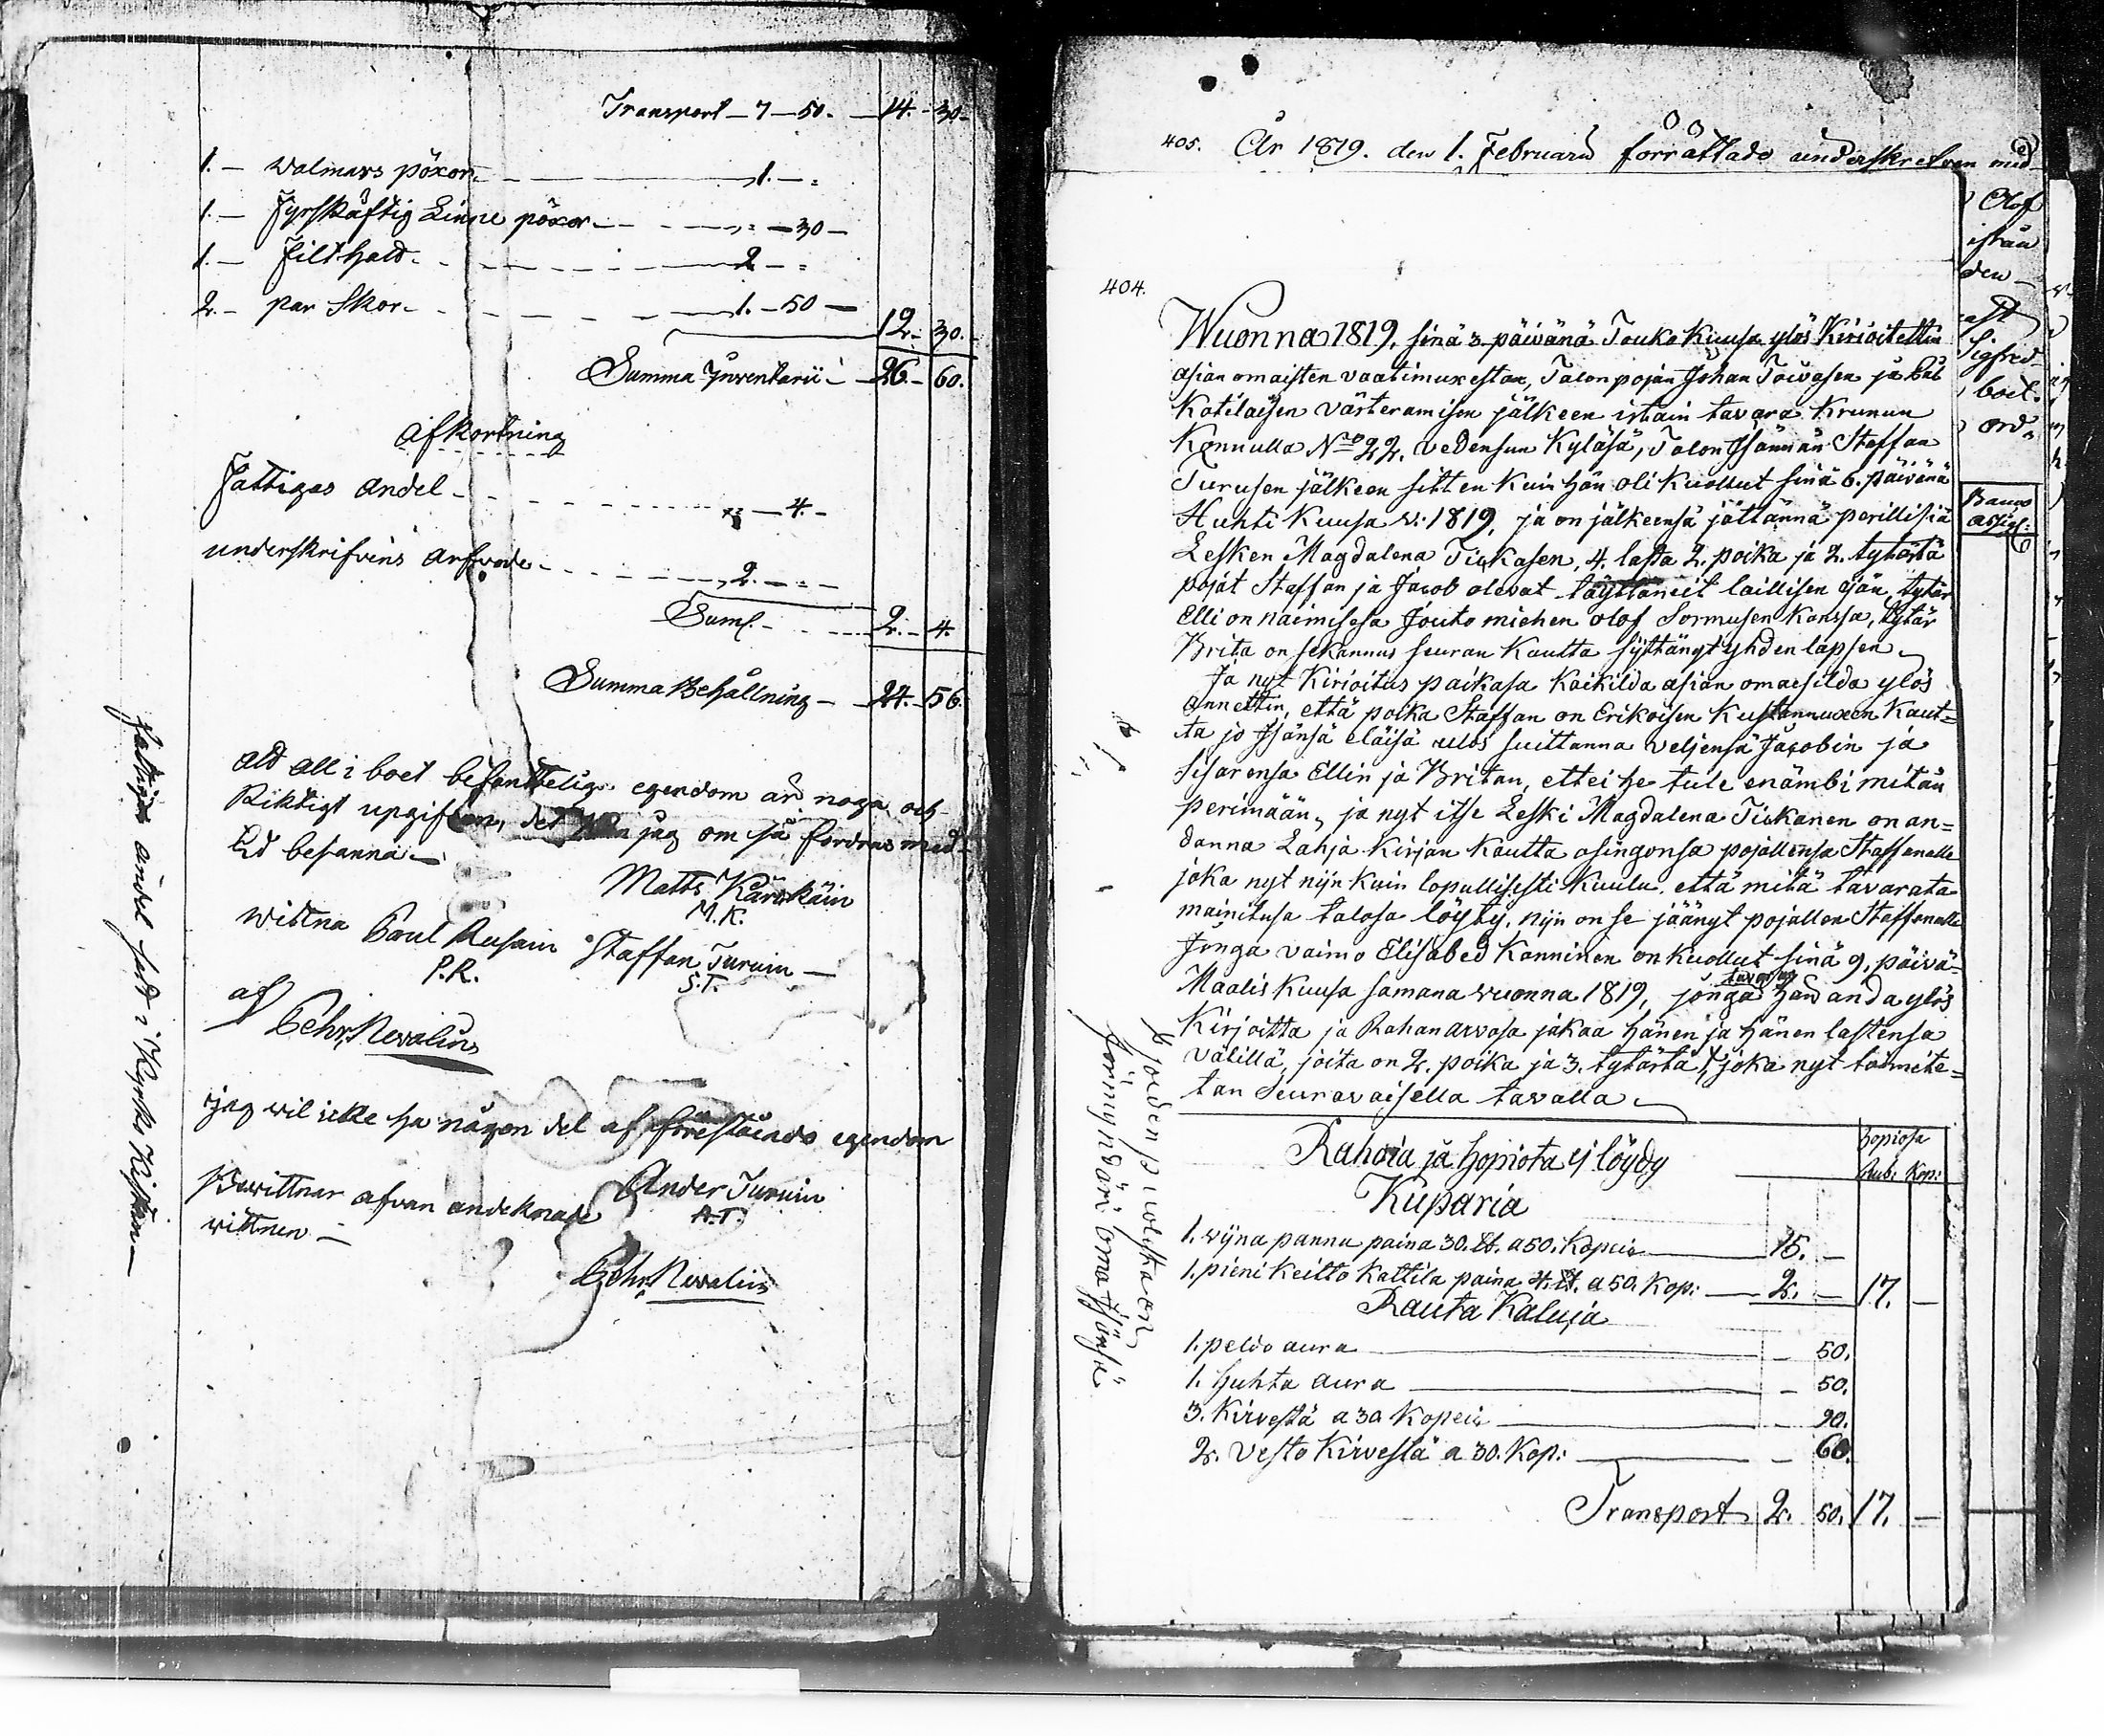 Transport - 7 - 50. - 14. - 30.
1. - walmars pöxor - 1. - "
1. - Fyrskäftig Linne pöxor - " - 30 -
1. - Filt hatt - 2 - "
2. - par Skor - 1. - 50 -
12. - 30.
Summa Inventarii - 26. - 60.
Afkortning
Fattigas andel - " - 4. -
underskrifvins arfvode - 2. - "
Sum: - 2. - 4.
Summa Behållning - 24. - 56.
att all i boet befinttelig egendom är noga och
Riktigt upgifven, det kan jag om så fordras med
Ed besanna -
Matts Kärnkäin
M.K.
witna Paul Rusain Staffan Turuin -
P.R. S.T.
af Pehr Nevalin
jag vil icke ha någon del af förestående egendom
Ander Turuin
A.T.
Bewittnar afvan andeknade
wittnen -
Pehr Nevalin
Fattigas andel satt i Kyrko Kistan -
405. År 1819. den 1. Februarii förrättade underskrefven med
Olof
den
Sigfred
boet.
ord
Banco
assign:
404.
Wuonna 1819, sinä 3. päivänä Touko Kuusa ylös Kirioitettin
asian omaisten vaatimuxestan, Talon pojan Johan Toivasen ja Påt
Kotilaisen värteramisen jälkeen irtain tavara Krunun
Konnulla No 22. vedensun Kyläsä, Talon Isännän Staffan
Turusen jälkeen sitten kuin hän oli Kuollut sinä 6. päivänä
Huhti Kuusa v: 1819, ja on jälkeensä jättännä perillisiä
Lesken Magdalena Tiikasen, 4. lasta 2. poika ja 2. tytärtä
pojat Staffan ja Jacob olevat täyttäneit laillisen ijän, tytär
Elli on naimisesa Jouto miehen olof Sormusen Kanssa, tytär
Brita on sekannus seuran Kautta syttänyt yhden lapsen -
Ja nyt Kirioitus paikasa Kaikilda asian omaesilda ylös
annettin, että poika Staffan on Erikoisen Kustannuxen Kaut=
ta jo Isänsä eläisä ulos suittanna veljensä Jacobin ja
sisarensa Ellin ja Britan, ettei he tule enämbi mitän
perimään, ja nyt itse Leski Magdalena Tiikanen on an=
danna Lahja Kirjan Kautta osingonsa pojallensa Staffanalle
joka nyt nijn kuin lopullisesti Kuulu, että mitä tavarata
mainitusa talosa löyty, nijn on se jäänyt pojallen Staffanalle
Jonga vaimo Elisabed Konninen on Kuollut sinä 9. päivä=
Maalis Kuusa samana vuonna 1819, jonga tavaran hän anda ylös
Kirjoitta ja Rahan arvosa jakaa hänen ja hänen lastensa
välillä, joita on 2. poika ja 3. tytärtä, joka nyt toimite=
tan Seuravaisella tavalla -
joiden puolesta on
förmyndäri oma Isänsä
Hopiosa
Rub: Kop:
Rahoia ja Hopiota ej löydy
Kuparia
1. vijna pannu paina 30. lb. a 50. Kopeia - 15. -
1. pieni Keitto Kattila paina 4. lb. a 50. Kop: - 2. - 17. -
Rauta Kaluja
1. peldo aura - 50.
1. huhta aura - 50.
3. Kirvestä a 30 Kopeia - 90.
2. vesto Kirvestä a 30. Kop: - 60.
Transport 2. 50. 17. -